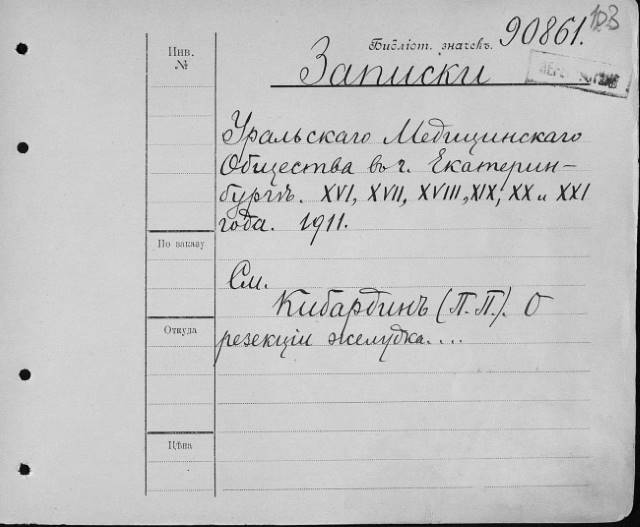 103
Инв.
№
Библіот. значекъ. 90861.
Записки
Уральскаго Медицинскаго
Общества въ г. Екатерин-
бургѣ. XVI, XVII, XVIII, XIX, XX и XXI
года. 1911.
По заказу
См.
Кибардинъ (П. П.). О
Откуда
резекціи желудка....
Цѣна